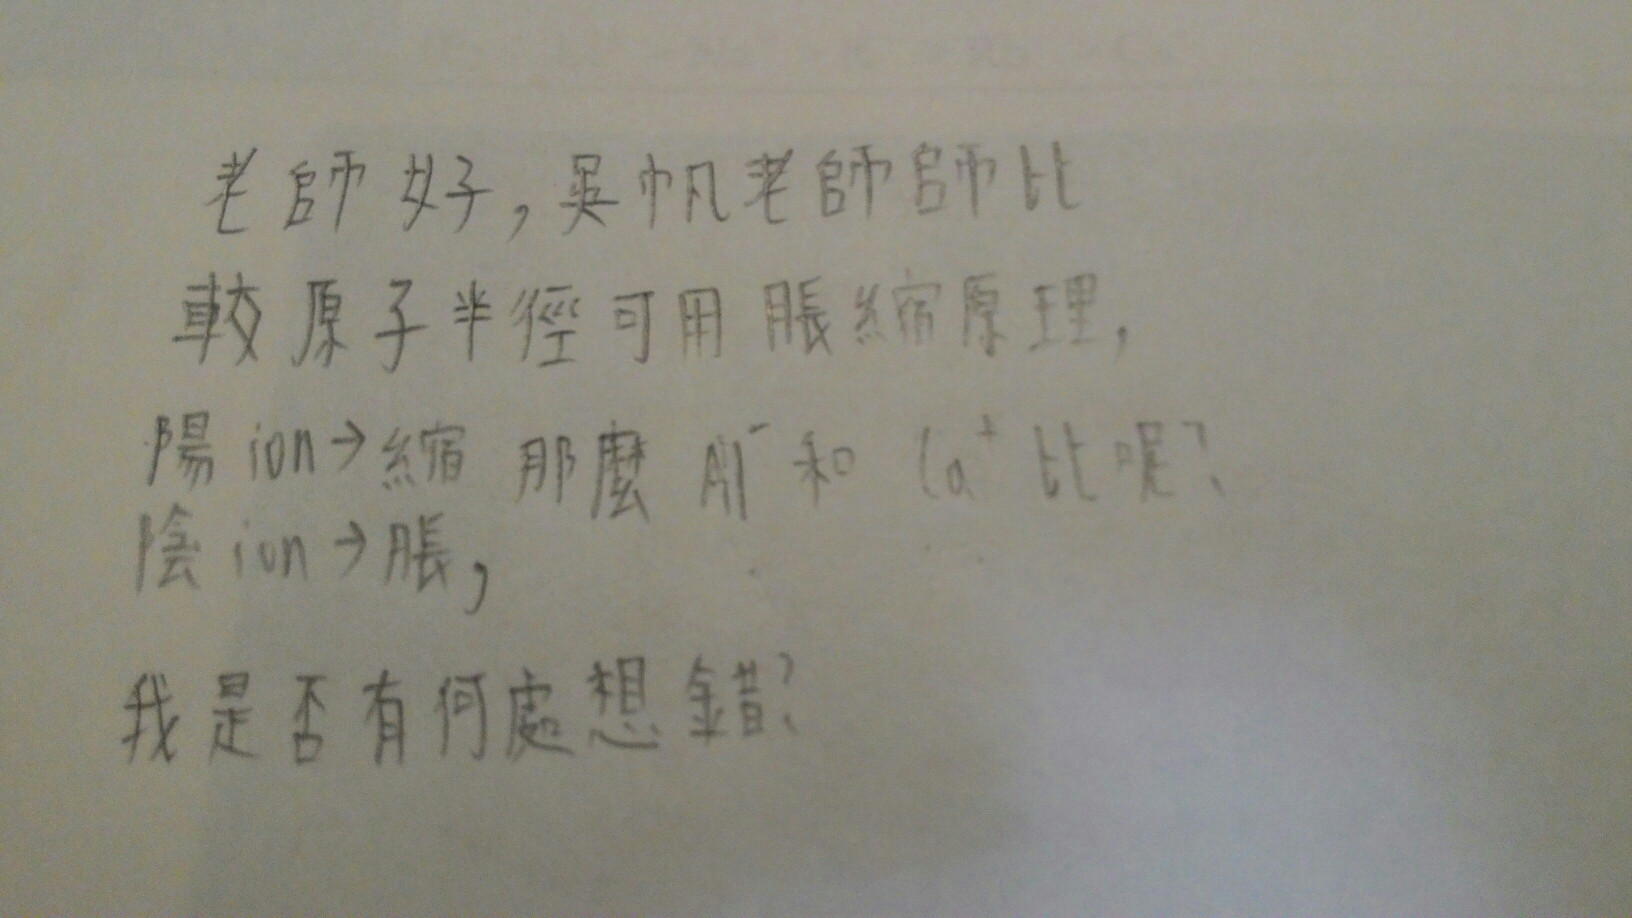 老師好,吳帆老師師比
較原子半徑可用脹縮原理,
陽ion→縮 那麼 Al⁻和 Ca⁺比呢?
陰ion→脹,
我是否有何處想錯?